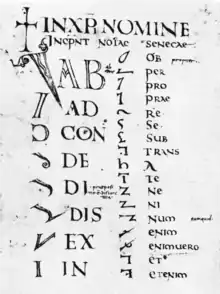 IN XPI NOMINE
INCPNT NOTAE SENECAE
AB
AD
CON
DE
DI
DIS
EX
IN
OB
PER
PRO
PRAE
RE
SE
SUB
TRANS
A
TE
NE
NI
NUM
ENIM
ENIMUERO
ET
ETENIM